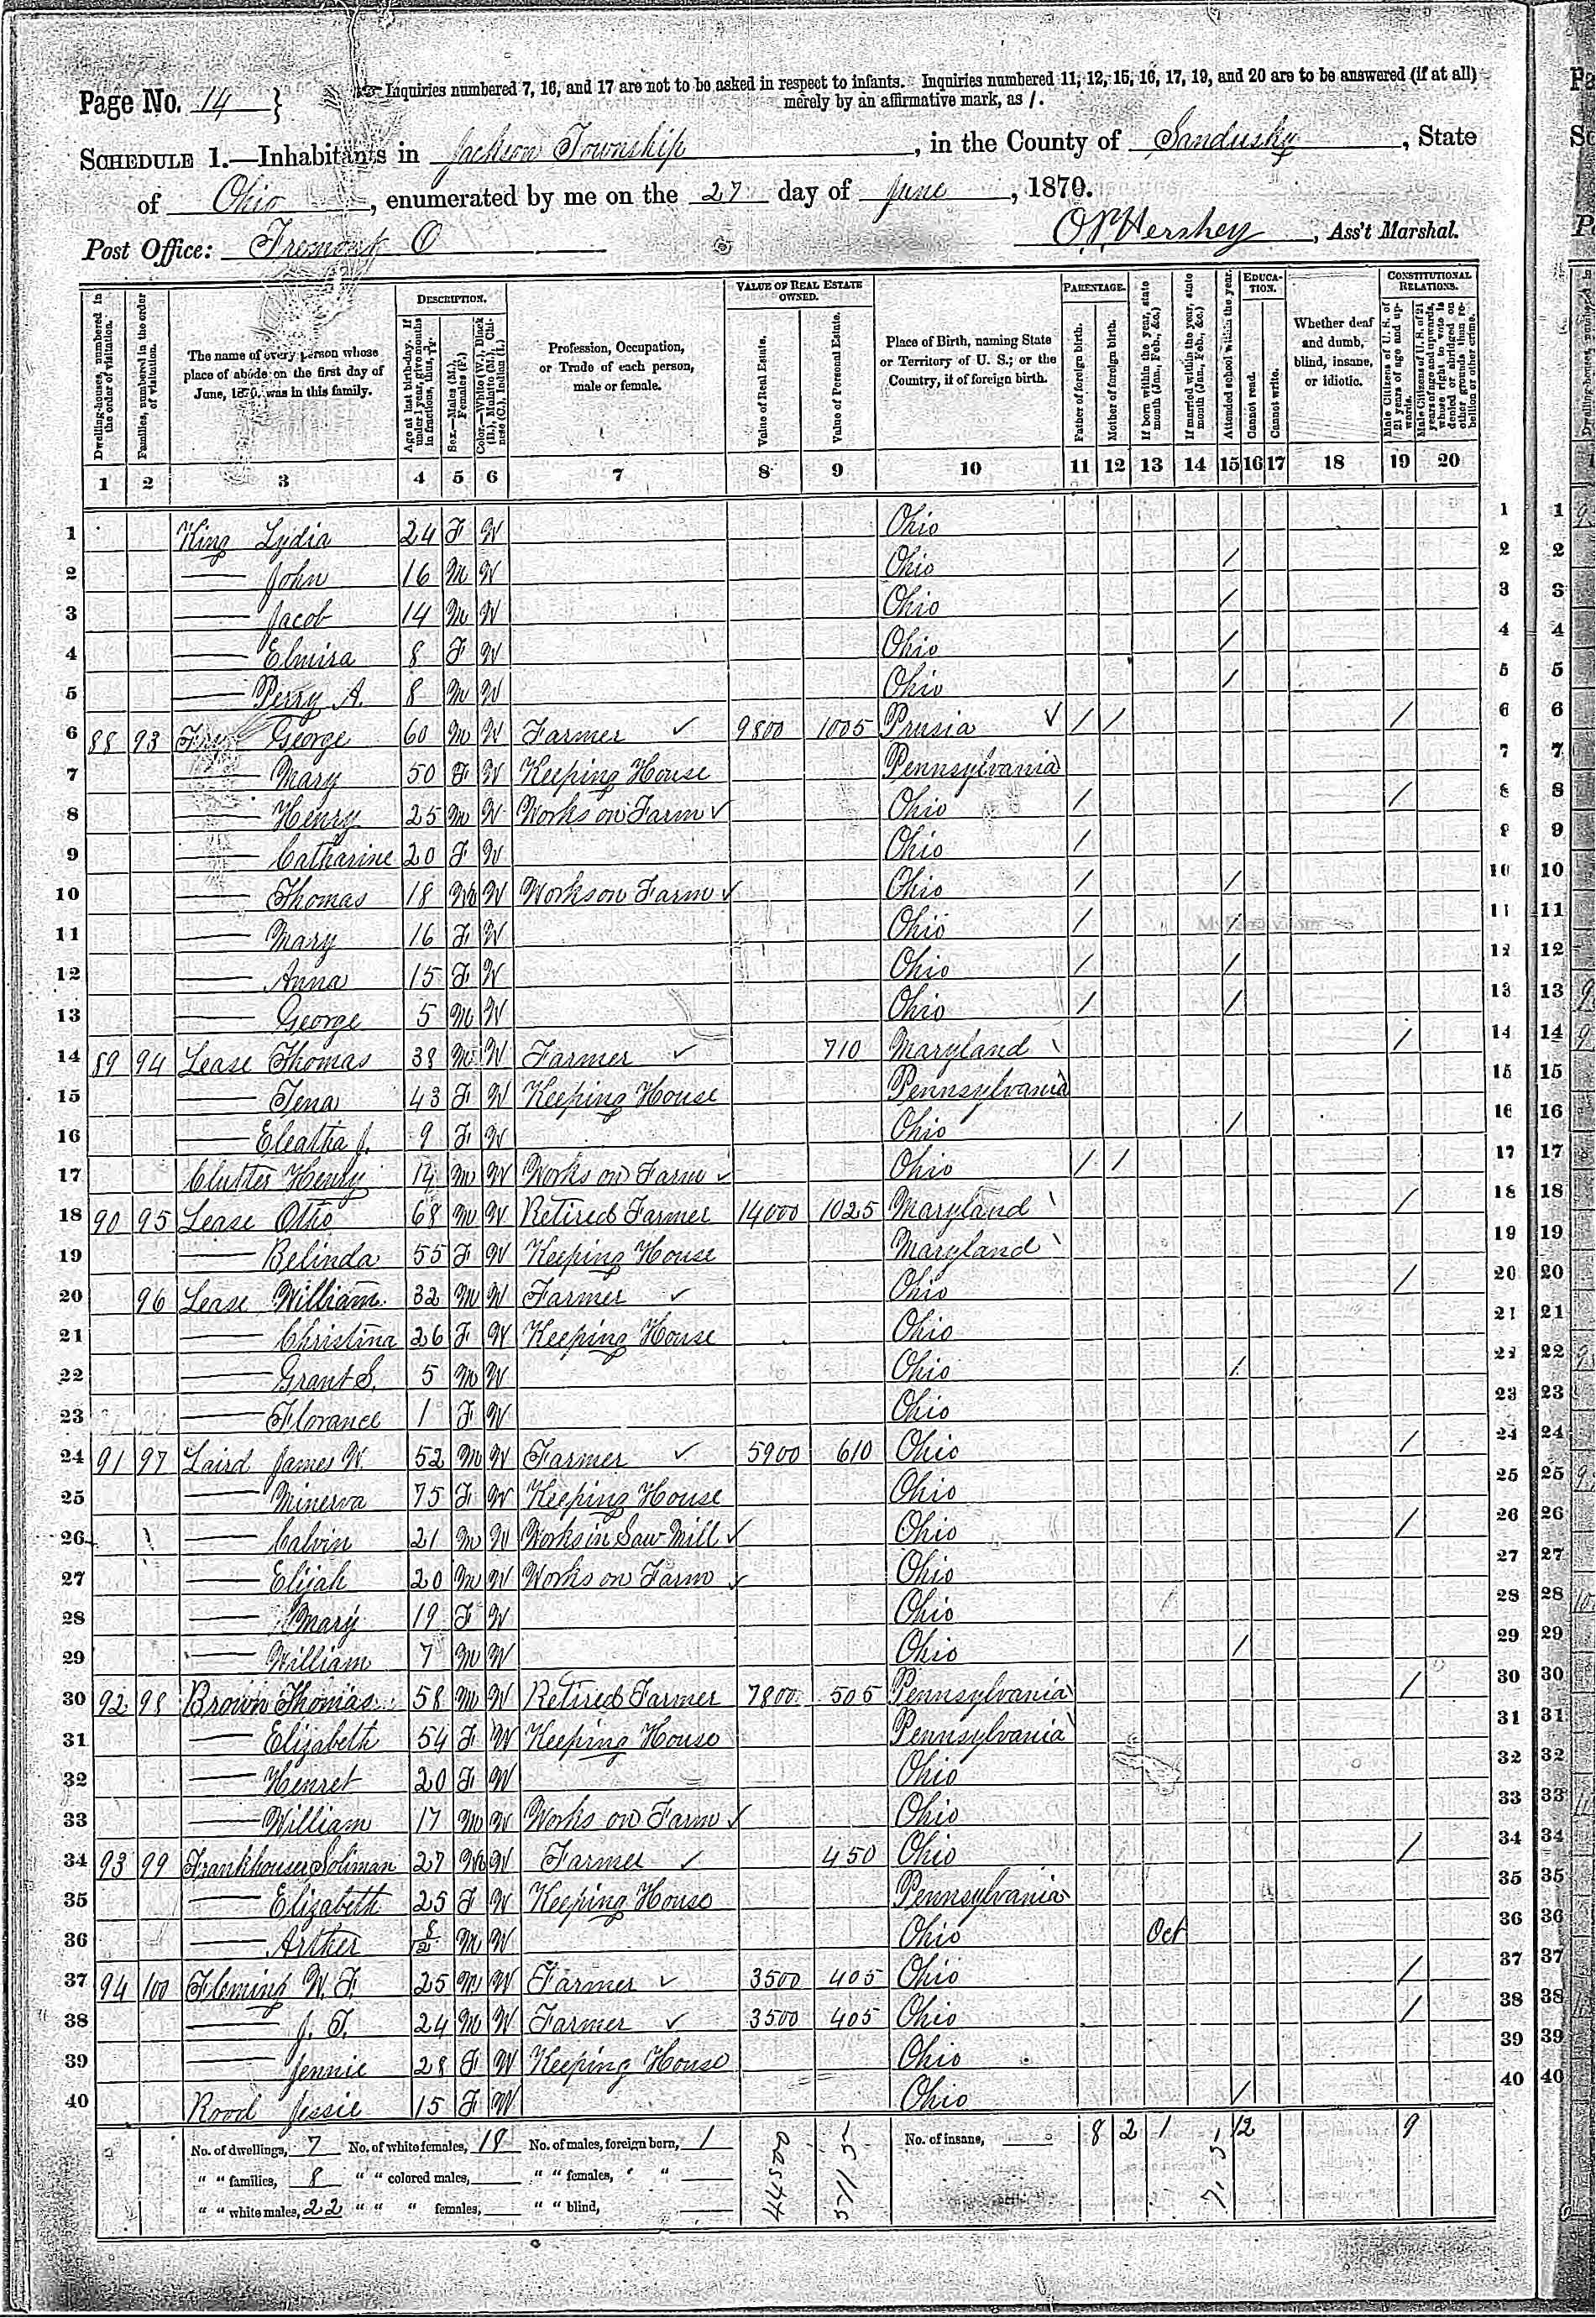 Page No. 14 }
Inquiries numbered 7, 16, and 17 are not to be asked in respect to infants. Inquiries numbered 11, 12, 15, 16, 17, 19, and 20 are to be answered (if at all)
merely by an affirmative mark, as /.
SCHEDULE 1.—Inhabitants in Jackson Township, in the County of Sandusky, State
of Ohio, enumerated by me on the 27 day of June, 1870.
Post Office: Fremont O
O. P. Hershey, Ass't Marshal.
Dwelling-houses, numbered in the order of visitation.
Families, numbered in the order of visitation.
The name of every person whose place of abode on the first day of June, 1870, was in this family.
DESCRIPTION.
Age at last birth-day. If under 1 year, give months in fractions, thus,
Sex.—Males (M.), Females (F.)
Color.—White (W.), Black (B.), Mulatto (M.), Chinese (C.), Indian (I.)
Profession, Occupation, or Trade of each person, male or female.
VALUE OF REAL ESTATE OWNED.
Value of Real Estate.
Value of Personal Estate.
Place of Birth, naming State or Territory of U. S.; or the Country, if of foreign birth.
PARENTAGE.
Father of foreign birth.
Mother of foreign birth.
If born within the year, state month (Jan., Feb., &c.)
If married within the year, state month (Jan., Feb., &c.)
Attended school within the year.
EDUCATION.
Cannot read.
Cannot write.
Whether deaf and dumb, blind, insane, or idiotic.
CONSTITUTIONAL RELATIONS.
Male Citizens of U. S. of 21 years of age and upwards.
Male Citizens of U. S. of 21 years of age and upwards, whose right to vote is denied or abridged on other grounds than rebellion or other crime.
1 2 3 4 5 6 7 8 9 10 11 12 13 14 15 16 17 18 19 20
1 King Lydia 24 F W Ohio 1
2 — John 16 M W Ohio / 2
3 — Jacob 14 M W Ohio / 3
4 — Elmira 8 F W Ohio / 4
5 — Perry A. 8 M W Ohio / 5
6 88 93 George 60 M W Farmer ✓ 9800 1005 Prusia ✓ / / / 6
7 — Mary 50 F W Keeping House Pennsylvania 7
8 — Henry 25 M W Works on Farm ✓ Ohio / / 8
9 — Catharine 20 F W Ohio / 9
10 — Thomas 18 M W Works on Farm ✓ Ohio / / 10
11 — Mary 16 F W Ohio / / 11
12 — Anna 15 F W Ohio / / 12
13 — George 5 M W Ohio / / 13
14 89 94 Lease Thomas 38 M W Farmer ✓ 710 Maryland / 14
15 — Tena 43 F W Keeping House Pennsylvania 15
16 — Eleatha J. 9 F W Ohio / 16
17 Clutter Henry 14 M W Works on Farm ✓ Ohio / / 17
18 90 95 Lease Otho 68 M W Retired Farmer 14000 1025 Maryland / 18
19 — Belinda 55 F W Keeping House Maryland 19
20 96 Lease William 32 M W Farmer ✓ Ohio / 20
21 — Christina 26 F W Keeping House Ohio 21
22 — Grant S. 5 M W Ohio / 22
23 — Florance 1 F W Ohio 23
24 91 97 Laird James W. 52 M W Farmer ✓ 5900 610 Ohio / 24
25 — Minerva 75 F W Keeping House Ohio 25
26 — Calvin 21 M W Works in Saw Mill ✓ Ohio / 26
27 — Elijah 20 M W Works on Farm ✓ Ohio 27
28 — Mary 19 F W Ohio 28
29 — William 7 M W Ohio / 29
30 92 98 Brown Thomas 58 M W Retired Farmer 7800 505 Pennsylvania / 30
31 — Elizabeth 54 F W Keeping House Pennsylvania 31
32 — Henret 20 F W Ohio 32
33 — William 17 M W Works on Farm ✓ Ohio 33
34 93 99 Frankhouser Soliman 27 M W Farmer ✓ 450 Ohio / 34
35 — Elizabeth 25 F W Keeping House Pennsylvania 35
36 — Arther 8/12 M W Ohio Oct 36
37 94 100 Fleming W. F. 25 M W Farmer ✓ 3500 405 Ohio / 37
38 — J. T. 24 M W Farmer ✓ 3500 405 Ohio / 38
39 — Jennie 28 F W Keeping House Ohio 39
40 Rood Jessie 15 F W Ohio / 40
No. of dwellings, 7 No. of white females, 18 No. of males, foreign born, 1 44500 5115 No. of insane, 8 2 1 12 9
" " families, 8 " " colored males, " " females, " "
" " white males, 22 " " " females, " " blind,